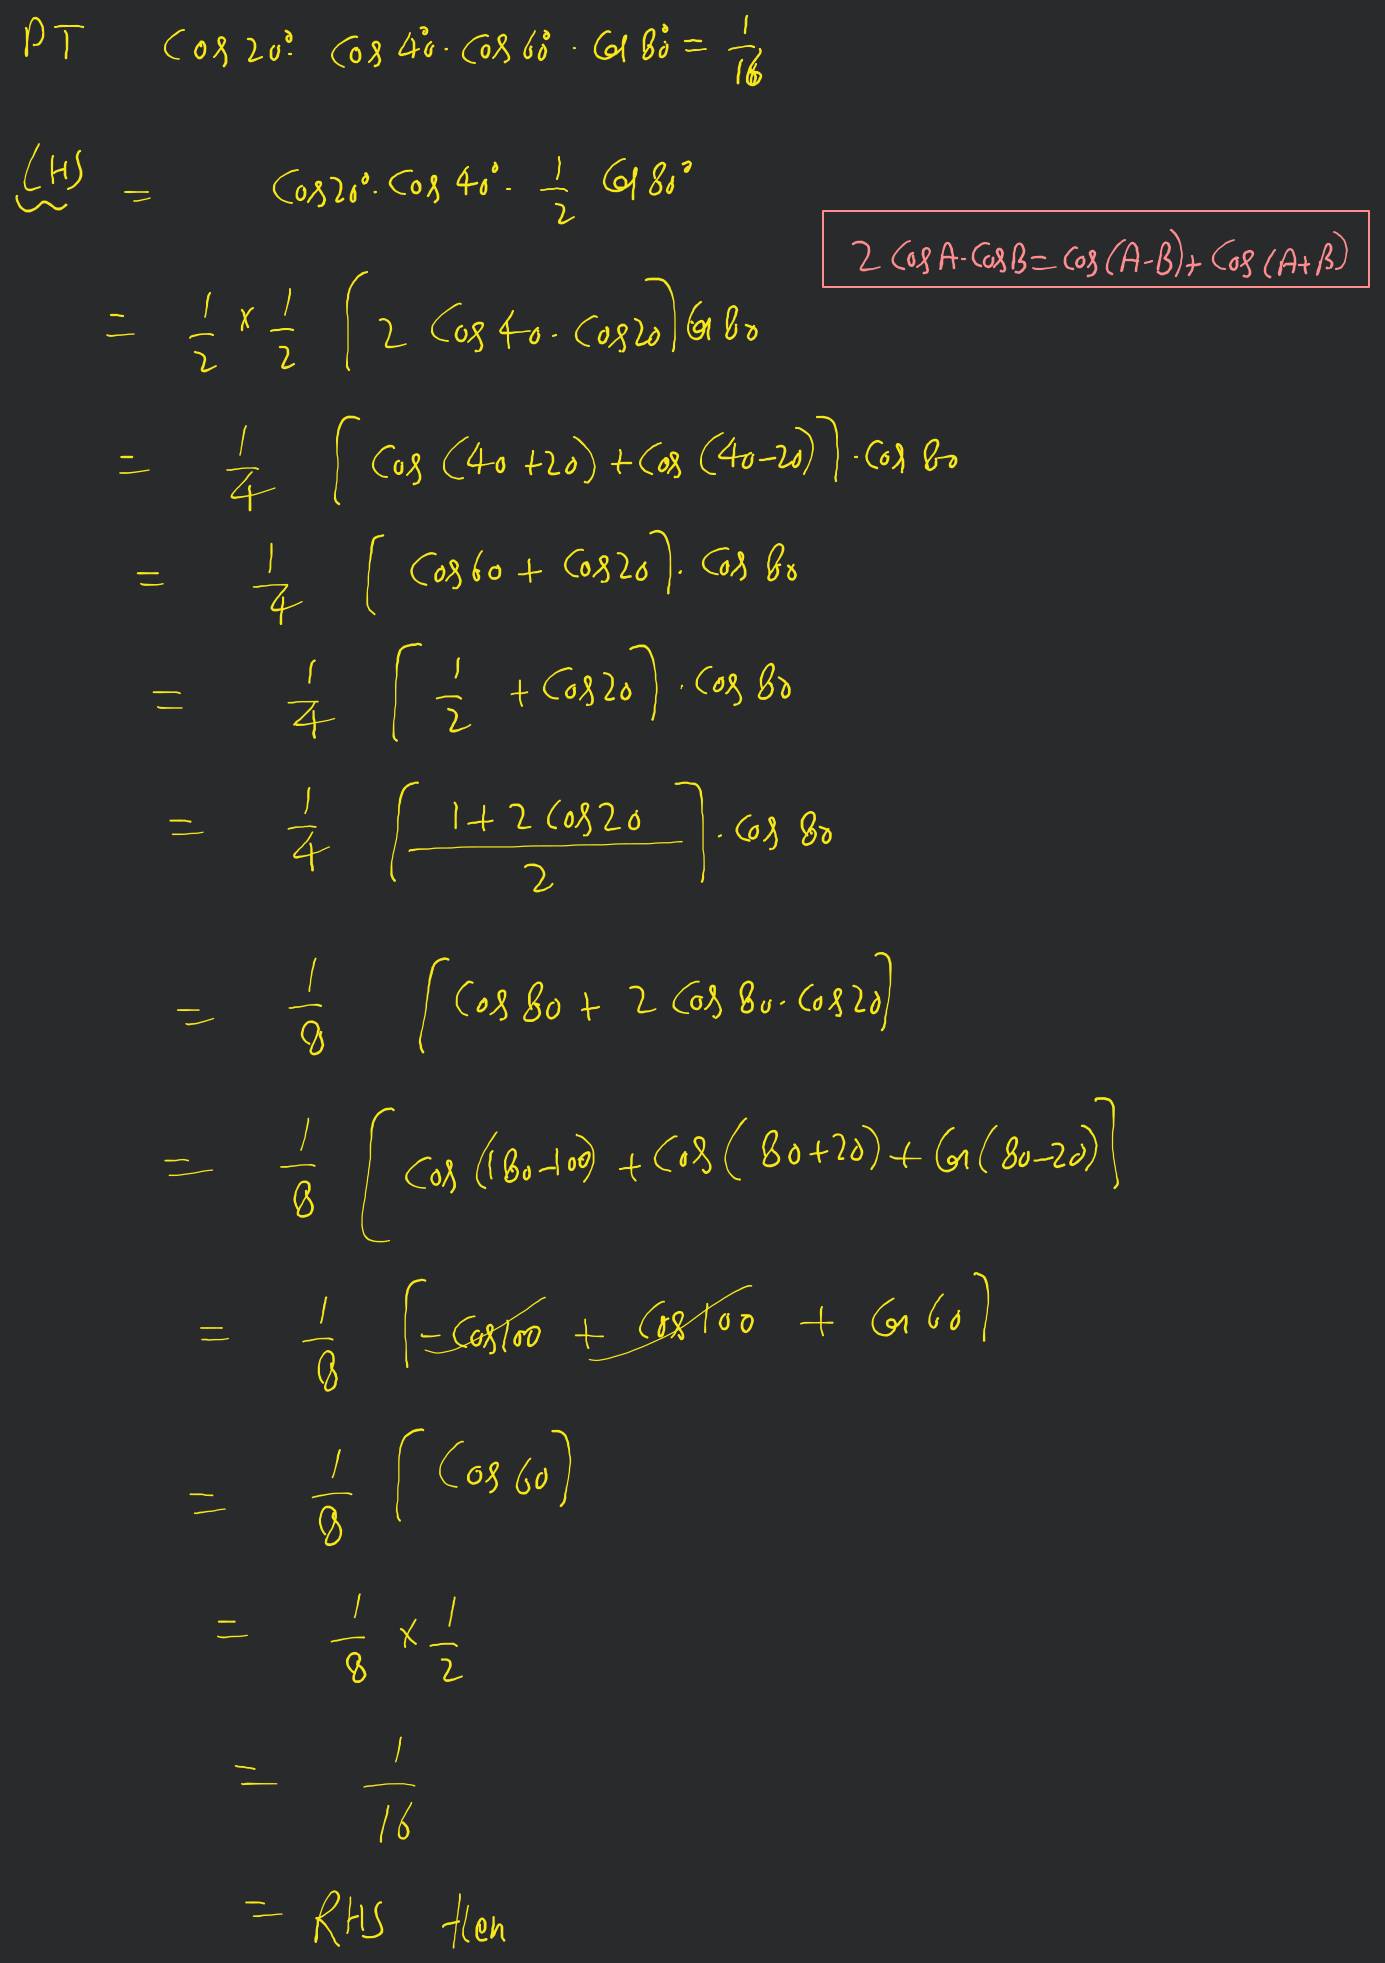 PT Cos 20°. Cos 40°. Cos 60°. Cos 80° = 1/16
LHS = Cos 20°. Cos 40°. 1/2 Cos 80°
2 Cos A. Cos B = Cos (A-B) + Cos (A+B)
= 1/2 × 1/2 [2 Cos 40. Cos 20] Cos 80
= 1/4 [Cos (40+20) + Cos (40-20)]. Cos 80
= 1/4 [Cos 60 + Cos 20]. Cos 80
= 1/4 [1/2 + Cos 20]. Cos 80
= 1/4 [(1+2 Cos 20)/2]. Cos 80
= 1/8 [Cos 80 + 2 Cos 80. Cos 20]
= 1/8 [Cos (180-100) + Cos (80+20) + Cos (80-20)]
= 1/8 [-Cos 100 + Cos 100 + Cos 60]
= 1/8 [Cos 60]
= 1/8 × 1/2
= 1/16
= RHS